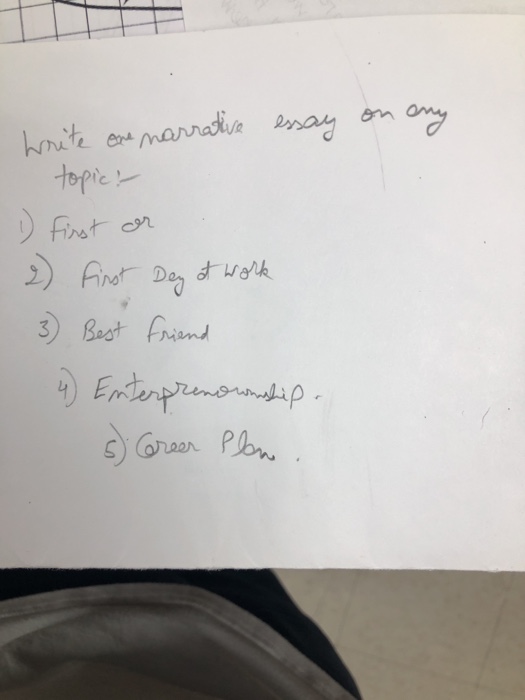 Write one narrative essay on any
topic:-
1) First car
2) First Day at work
3) Best friend
4) Enterprenownship.
5) Career Plan.